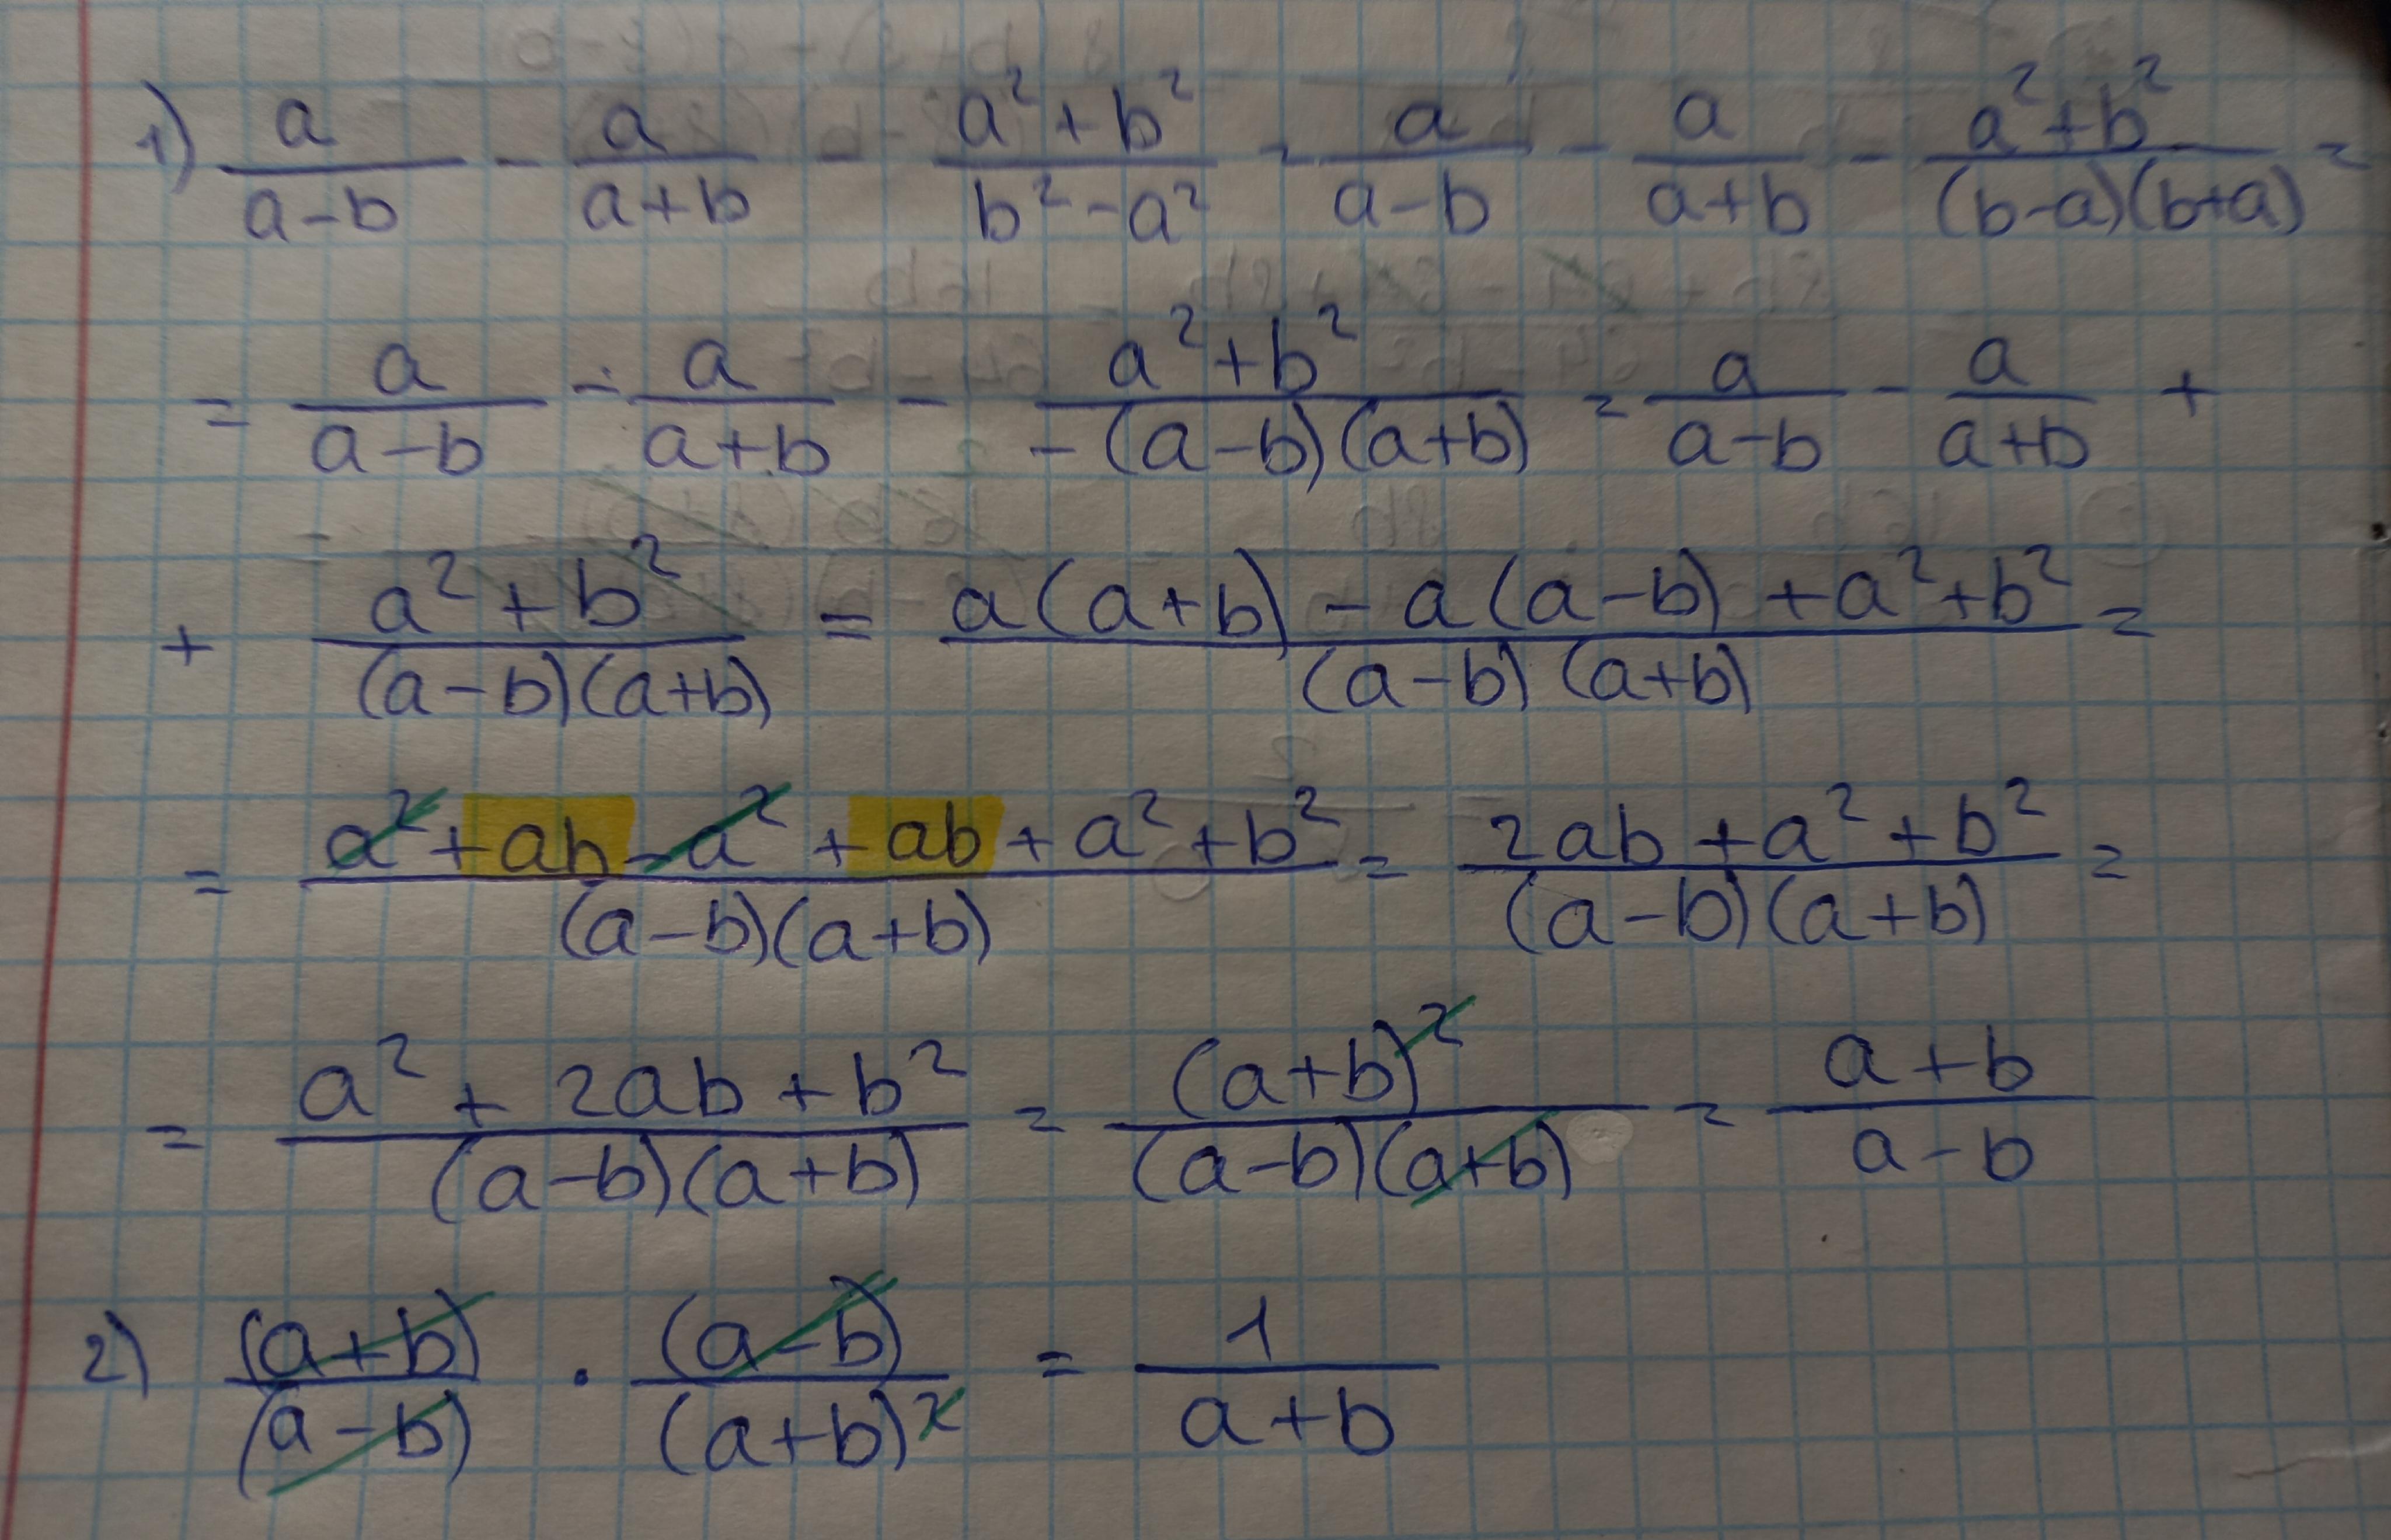 1) a/(a-b) - a/(a+b) - (a²+b²)/(b²-a²) = a/(a-b) - a/(a+b) - (a²+b²)/((b-a)(b+a)) =
= a/(a-b) - a/(a+b) - (a²+b²)/(-(a-b)(a+b)) = a/(a-b) - a/(a+b) +
+ (a²+b²)/((a-b)(a+b)) = (a(a+b) - a(a-b) + a²+b²)/((a-b)(a+b)) =
= (a²+ab-a²+ab+a²+b²)/((a-b)(a+b)) = (2ab+a²+b²)/((a-b)(a+b)) =
= (a²+2ab+b²)/((a-b)(a+b)) = (a+b)²/((a-b)(a+b)) = (a+b)/(a-b)
2) (a+b)/(a-b) · (a-b)/(a+b)² = 1/(a+b)